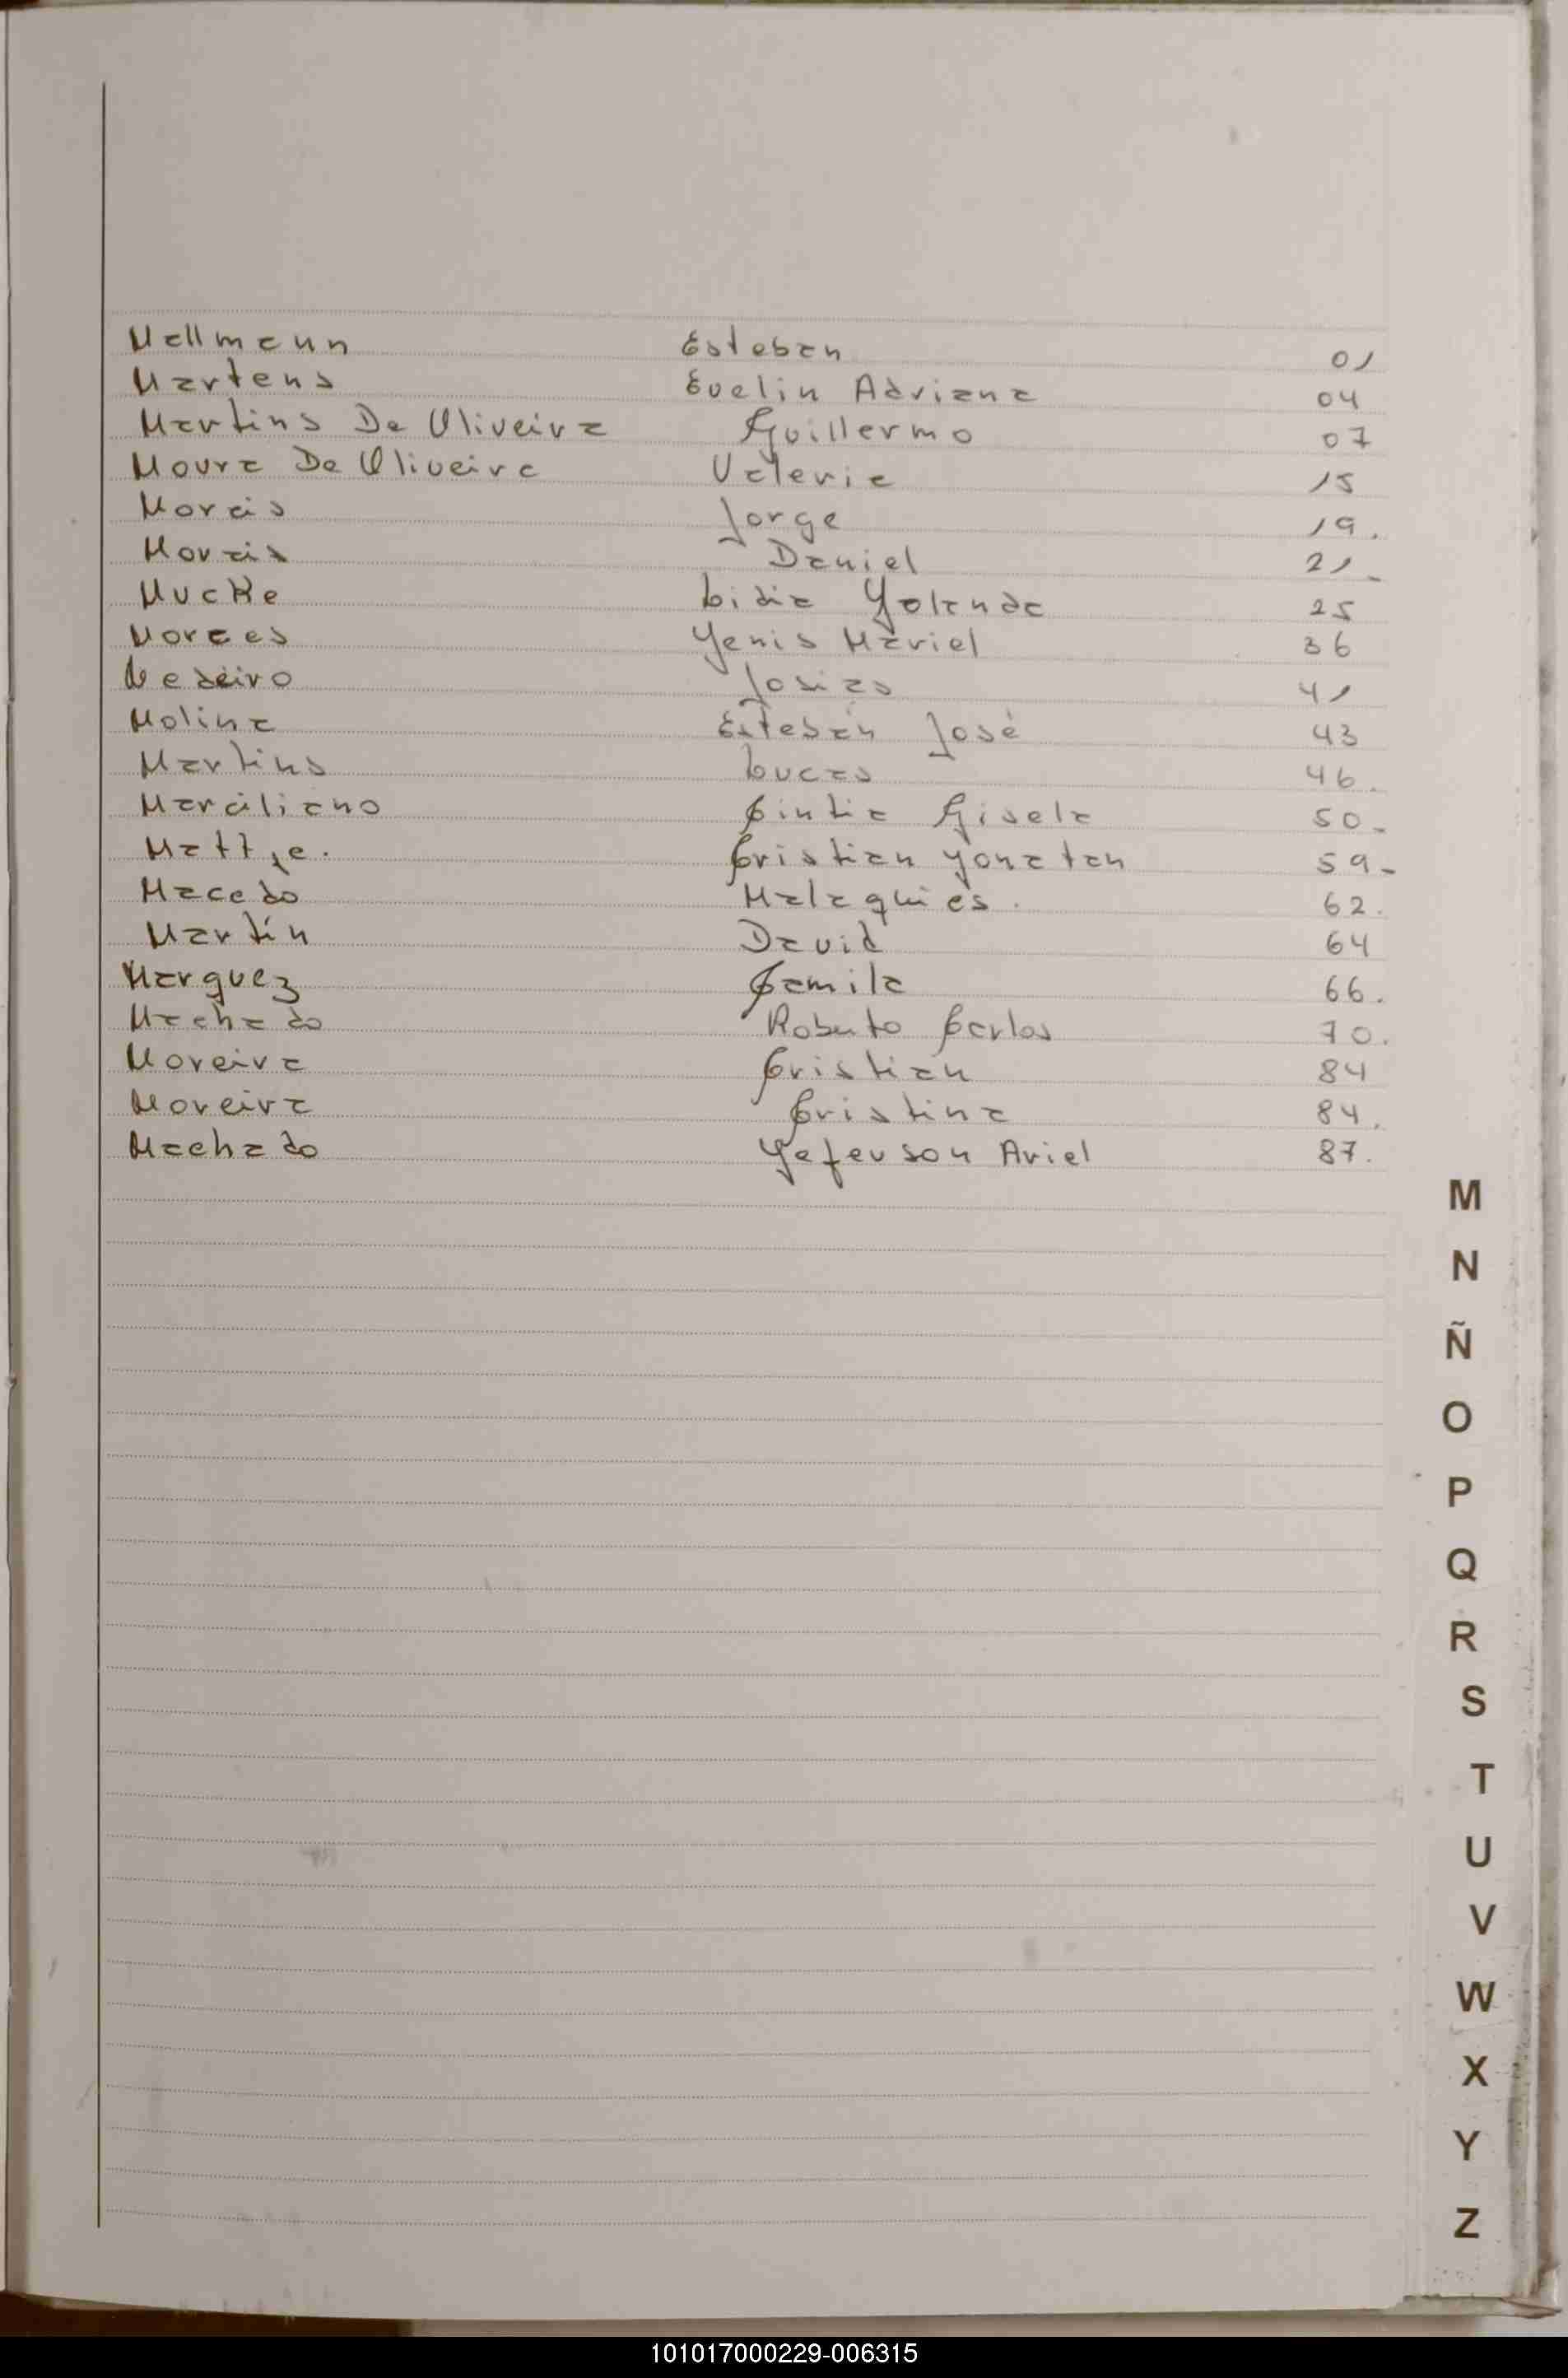 Mallmann Esteban 01
Martens Evelin Adriana 04
Martins De Oliveira Guillermo 07
Moura De Oliveira Valeria 15
Morais Jorge 19.
Morais Daniel 21-
Mucke Lidia Yolanda 25
Moraes Yenis Mariel 36
Medeiro Josias 41
Molina Esteban José 43
Martins Lucas 46.
Marciliano Cintia Gisela 50-
Cristian Yonatan 59-
Macedo Malaquias. 62.
Martín David 64
Marquez Camila 66.
Machado Roberto Carlos 70.
Moreira Cristian 84
Moreira Cristina 84.
Machado Yeferson Ariel 87.
M
N
Ñ
O
P
Q
R
S
T
U
V
W
X
Y
Z
101017000229-006315